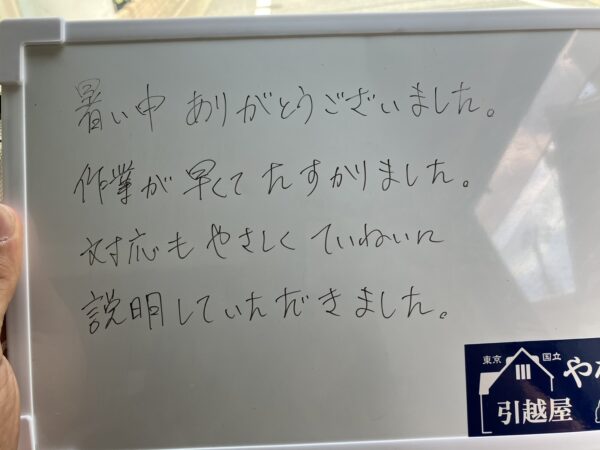 暑い中 ありがとうございました。
作業が 早くて たすかりました。
対応も やさしく ていねいに
説明していただきました。
東京 国立
引越屋